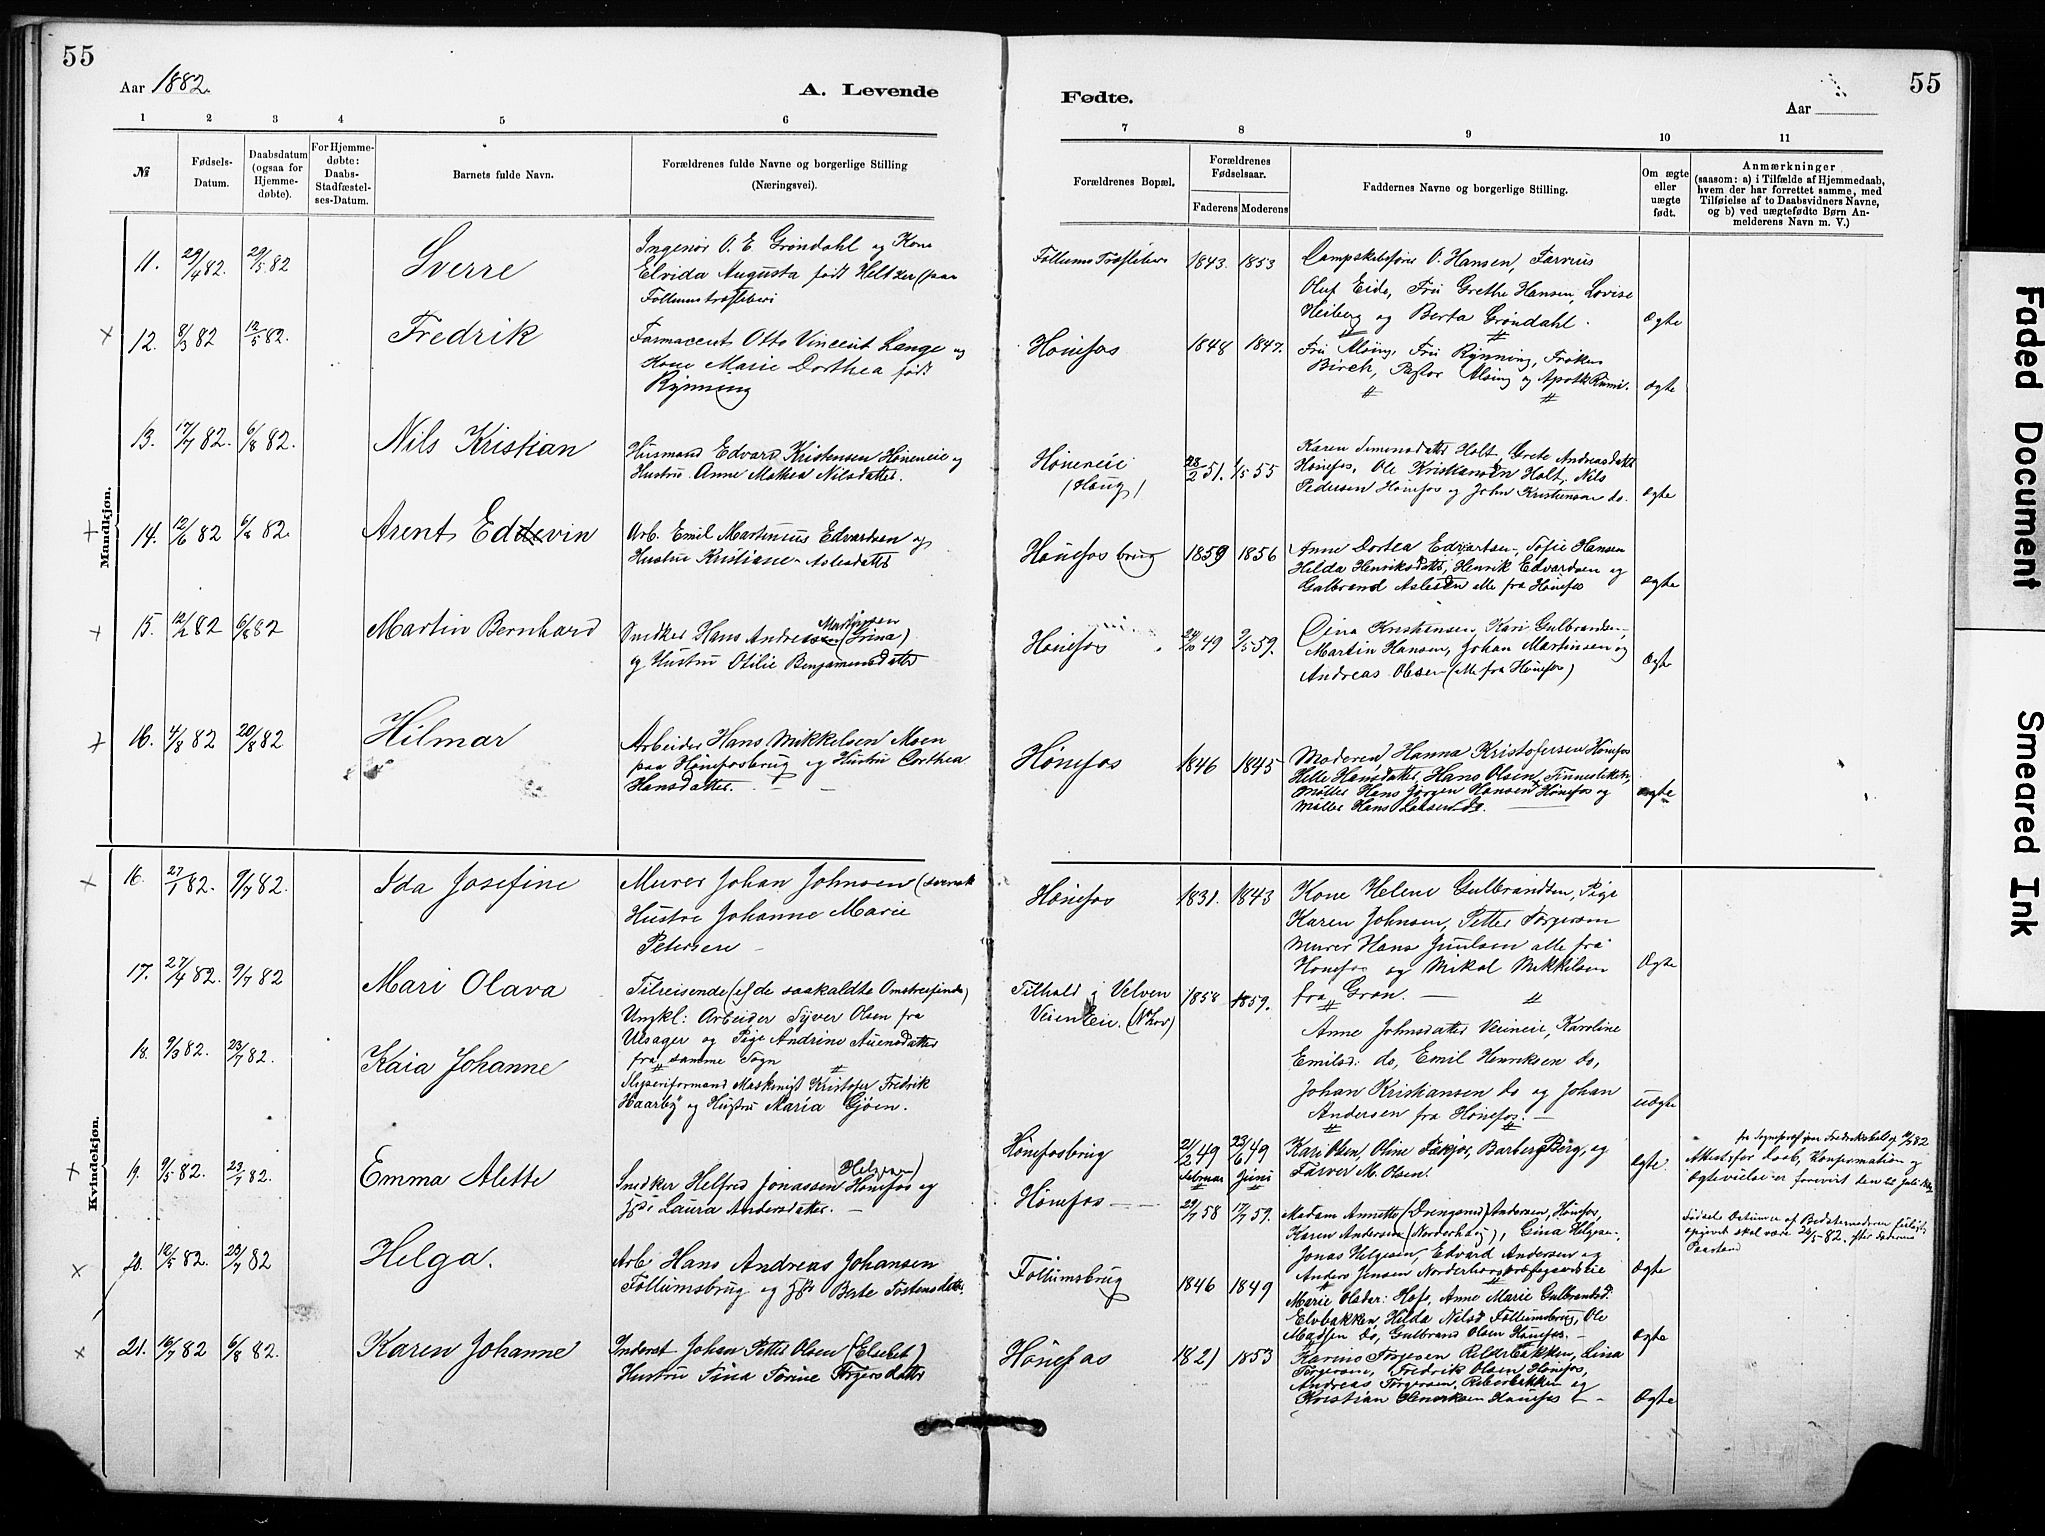 55
Aar 1882.
A. Levende
1 2 3 4 5 6
№
Fødsels-
Datum.
Daabsdatum
(ogsaa for
Hjemme-
døbte).
For Hjemme-
døbte:
Daabs-
Stadfæstel-
ses-Datum.
Barnets fulde Navn.
Forældrenes fulde Navne og borgerlige Stilling
(Næringsvei).
Mandkjøn.
11. 29/4 82. 29/5 82 Sverre
Ingeniør O. E. Grøndahl og Kone
Elvida Augusta født Heltzer (paa
Follumstræsliberi
12. 8/3 82 12/5 82. Fredrik
Farmaceut Otto Vincent Lange og
Kone Marie Dorthea født
Rynning
13. 17/7 82. 6/8 82. Nils Kristian
Husmand Edvard Kristensen Høneneie og
Hustru Anne Mathea Nilsdatter.
14. 12/6 82 6/8 82. Arent Edevin
Arb. Emil Martinius Edvardsen og
Hustru Kristiane Aslesdatter
15. 12/2 82 6/8 82 Martin Bernhard
Snidker Hans Andreassen
og Hustru Otilie Benjamensdatter
16. 4/8 82 20/8 82 Hilmar
Arbeider Hans Mikkelsen Moen
paa Hønefosbrug og Hustru Dorthea
Hansdatter.
Kvindekjøn.
16. 27/1 82. 9/7 82. Ida Josefine
Murer Johan Johnsen (svensk
Hustru Johanne Marie
Petersen
17. 27/4 82. 9/7 82 Mari Olava
Tilreisende (af de saakaldte Omstreifende)
Umkl: Arbeider Syver Olsen fra
Ulsager og Pige Andrine Auensdatter
fra samme Sogn
18. 9/3 82. 23/7 82. Kaia Johanne
Slyseriformand Maskinist Kristofer Fredrik
Haarby og Hustru Maria Gjøen.
19. 9/5 82. 23/7 82. Emma Alette
Snidker Helfred Jonassen (Helgesen) Hønefos og
Laura Andersdatter.
20. 12/5 82. 23/7 82 Helga.
Arb. Hans Andreas Johansen
Follumsbrug og Berte Tostensdatter.
21. 16/7 82 6/8 82. Karen Johanne
Inderst Johan Petter Olsen
Hustru Tina Torine Torgersdatter
55
Fødte.
Aar
7 8 9 10 11
Forældrenes Bopæl.
Forældrenes
Fødselsaar.
Faderens Moderens
Faddernes Navne og borgerlige Stilling.
Om ægte
eller
uægte
født.
Anmærkninger
(saasom: a) i Tilfælde af Hjemmedaab,
hvem der har forrettet samme, med
Tilføielse af to Daabsvidners Navne,
og b) ved uægtefødte Børn An-
melderens Navn m. V.)
Follums Træsliberi 1843. 1853
Dampskibsfører O. Hansen,
Oluf Eide, Fru Grethe Hansen, Lovise
Heiberg og Berta Grøndahl. Ægte
Hønefos 1848 1847.
Fru Alsing, Fru Rynning, Frøken
Birch, Pastor Alsing og Apoth. ægte
Høneneie
(Houg) 28/2 51. 1/5 55
Karen Simensdatter Holt, Grete Andreasdatter
Hønefos, Ole Kristiansen Holt, Nils
Pedersen Hønefos og John Kristiansen do. ægte
Hønefos brug 1859 1856
Anne Dortea Edvartsen, Sofie Hansen
Hilda Henriksdatter, Henrik Edvardsen og
Gulbrand Aslesen alle fra Hønefos ægte
Hønefos 49 9/5 59.
Dina Kristiansen, Kari Gulbrandsen,
Martin Hansen, Johan Martinsen og
Andreas Olsen (alle fra Hønefos) Ægte
Hønefos 1846 1845
Moderen, Hanna Kristofersen Hønefos
Helle Hansdatter, Hans Olsen
Møller Hans Jørgen Hansen Hønefos og
Møller Hans Larsen do. ægte
Hønefos 1831. 1843
Kone Helene Gulbrandsen, Pige
Karen Johnsen, Petter Torgersen
Murer Hans Juulsen alle fra
Hønefos og Mikal Mikkelsen
fra Gran. Ægte
Tilhold i Velven
Veieneie. (Nhov) 1858 1859.
Anne Johnsdatter Veieneie, Karoline
Emilsd: do, Emil Henriksen do,
Johan Kristiansen do og Johan
Andersen fra Hønefos. uægte
Hønefosbrug 21/2 49 23/6 49
Februar Juni
Kari Olsen, Oline Barberg Berg, og
Farver M. Olsen. ægte.
Attest for Daab, Konfirmation og
Ægtevielse er forevist
Hønefos 29/7 58 17/7 59.
Madam Annette (Drengsrud) Andersen, Hønefos,
Karen Andersen (Norderhaug), Gina Helgesen,
Jonas Helgesen, Edvard Andersen og
Anders Jensen Ægte
Fødsels Datumen af Bedstemoderen feilagtig
opgivet skal være 26/5-82. efter Faderens
Paastand
Follumsbrug 1846 1849
Marie Olsdat: Hofs, Anne Marie Gulbrandsd.
Elvbakken, Hilda Nilsd Follumsbrug, Ole
Madsen do, Gulbrand Olsen Hønefos. ægte
Hønefos 1821 1853
Karine Torgersen, Lina
Torgersen, Fredrik Olsen Hønefos,
Andreas Torgersen, og
Kristian Henriksen Hønefos Ægte
Faded Document
Smeared Ink